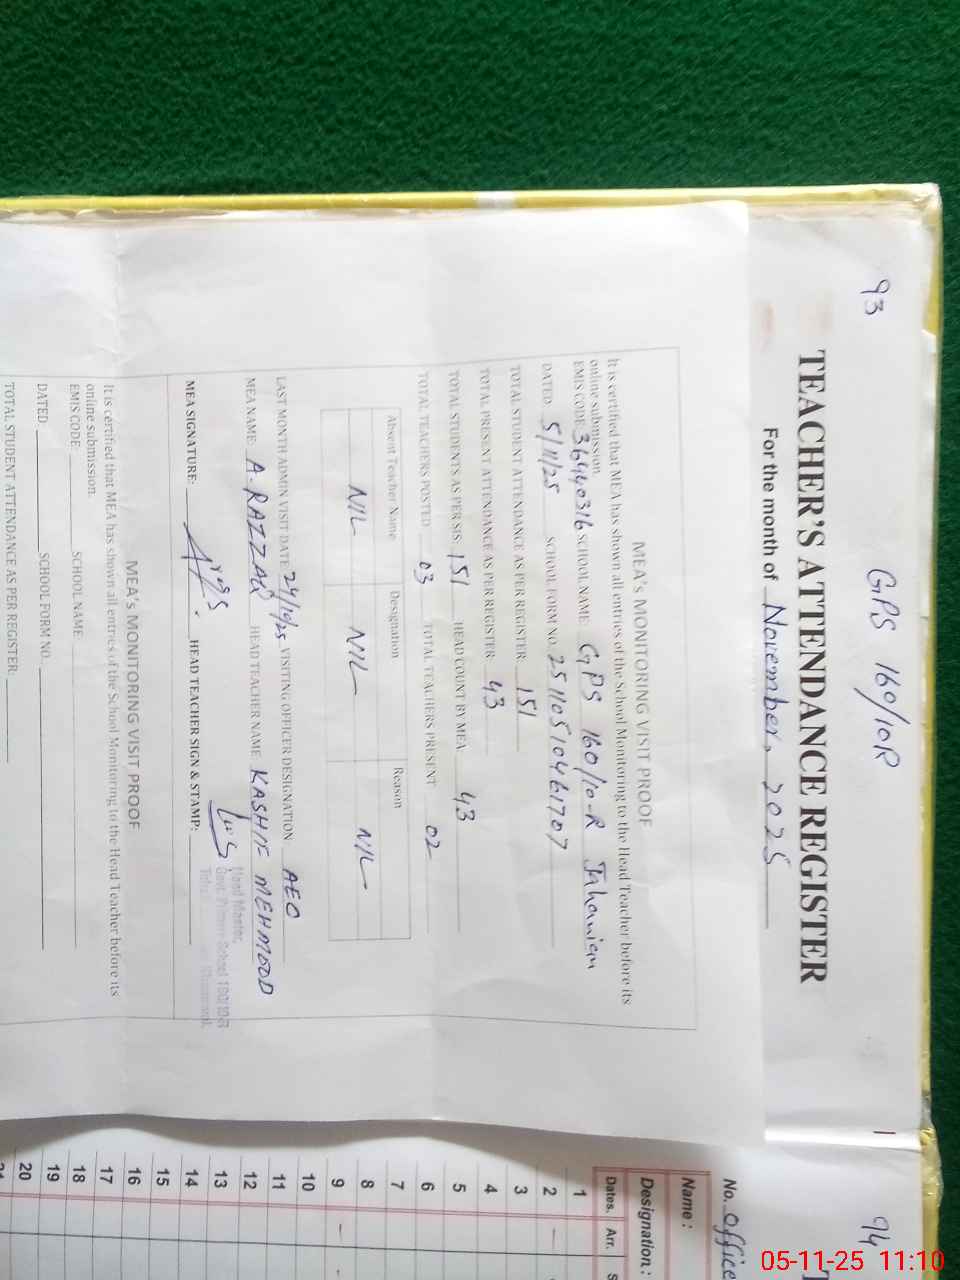 93
GPS 160/10R
TEACHER'S ATTENDANCE REGISTER
For the month of November, 2025
MEA's MONITORING VISIT PROOF
It is certified that MEA has shown all entries of the School Monitoring to the Head Teacher before its
online submission.
EMIS CODE: 36440316 SCHOOL NAME: GPS 160/10-R Jahanian
DATED 5/11/25 SCHOOL FORM NO. 25110510461707
TOTAL STUDENT ATTENDANCE AS PER REGISTER: 151
TOTAL PRESENT ATTENDANCE AS PER REGISTER: 43
TOTAL STUDENTS AS PER SIS: 151 HEAD COUNT BY MEA 43
TOTAL TEACHERS POSTED 03 TOTAL TEACHERS PRESENT 02
Absent Teacher Name Designation Reason
NIL NIL NIL
LAST MONTH ADMIN VISIT DATE: 24/10/25 VISITING OFFICER DESIGNATION AEO
MEA NAME: A. RAZZAQ HEAD TEACHER NAME KASHIF MEHMOOD
MEA SIGNATURE: HEAD TEACHER SIGN & STAMP:
Head Master,
Govt. Primary School 160/10-R
MEA's MONITORING VISIT PROOF
It is certified that MEA has shown all entries of the School Monitoring to the Head Teacher before its
online submission.
EMIS CODE: SCHOOL NAME:
DATED SCHOOL FORM NO.
TOTAL STUDENT ATTENDANCE AS PER REGISTER:
94
No. office
Name :
Designation :
Dates. Arr.
1
2
3
4
5
6
7
8
9
10
11
12
13
14
15
16
17
18
19
20
05-11-25 11:10